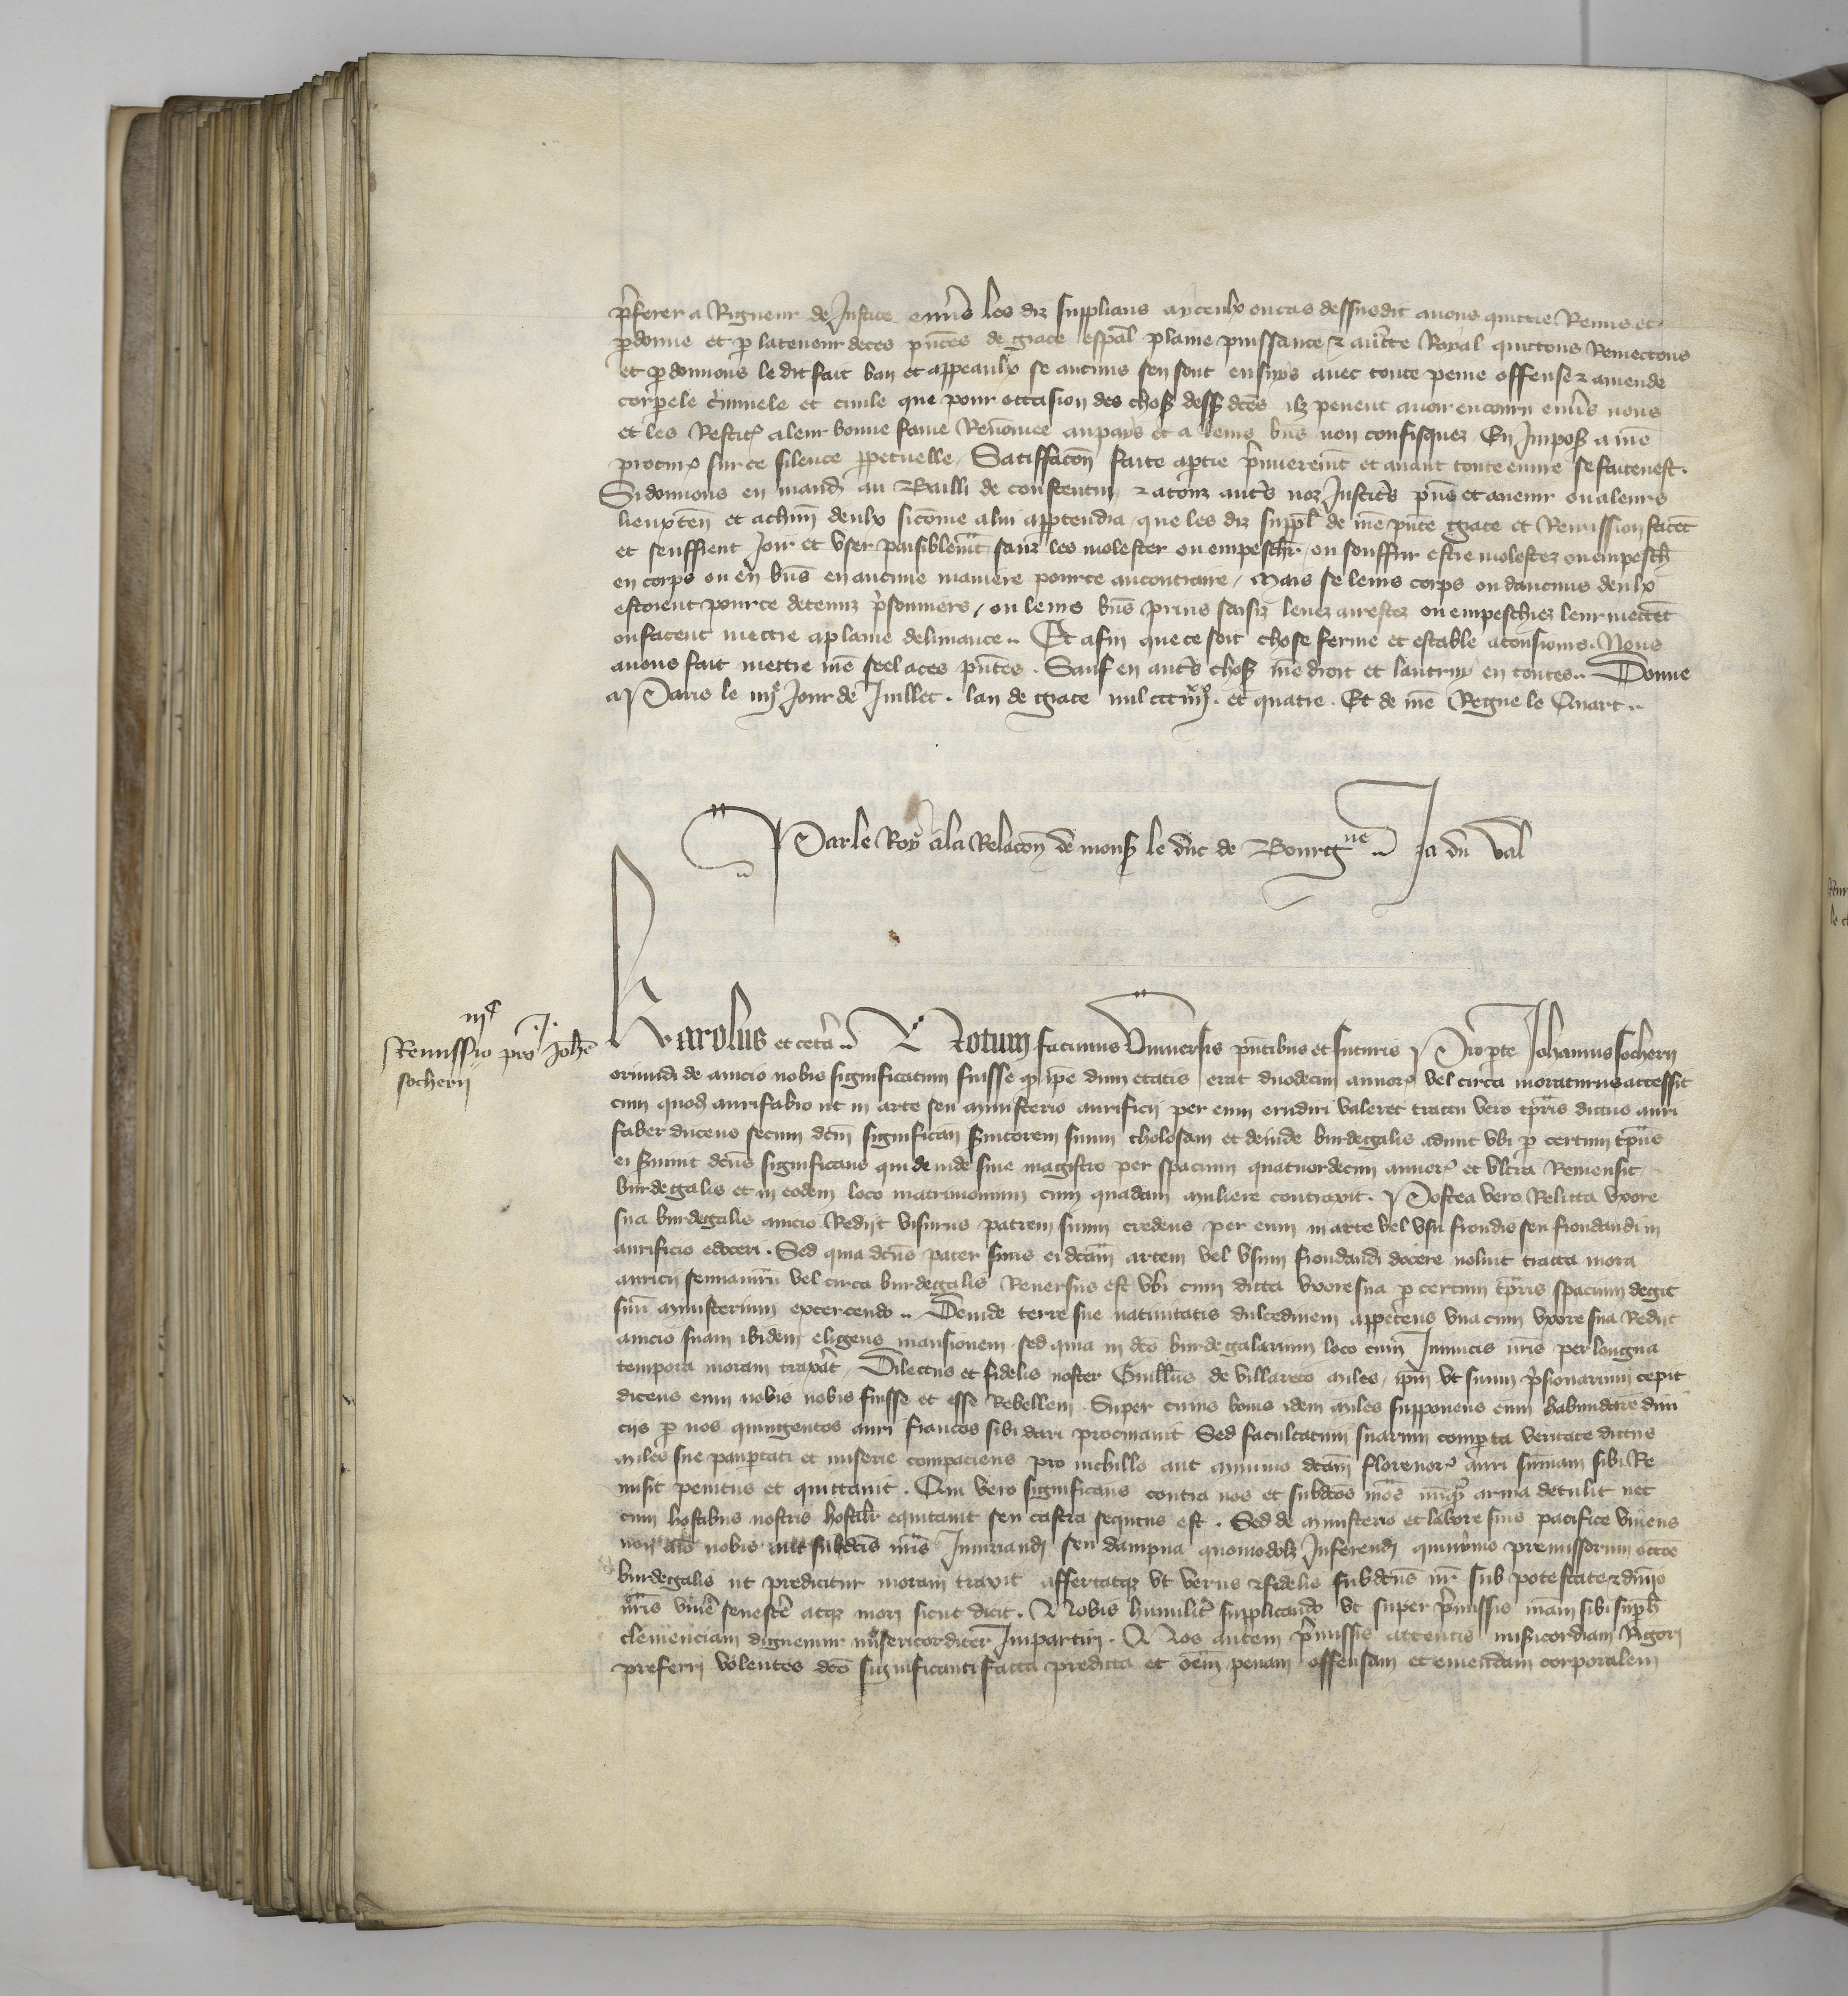 p̃ferer a Rigueur de Justice enũs les diz supplians a yceulx ou cas dessusdit avons quittie Remis et
pdonne et p la teneur de ces pñtes de grace esp̃al plaine puissance et auc̃te Royal quictons Remectons
et pdonnons le dit fait ban et appeaulx se aucuns sen sont ensuys avec toute peine offense et amende
corpele c̃iminele et civile que pour occasion des choses dess dc̃es ilz peuent avoir encouru enũs nous
et les Restit a leur bonne fame Renomee au pays et a leurs biẽs non confisquez En Impost a nr̃e
procur sur ce silence ppetuelle Satisfacõn faite a ptie p̃mieremẽt et avant toute euvre se faite nest.
Si donnons en mand au Bailli de constentin et a touz autr̃s noz Justic̃s p̃ns et avenir ou a leurs
lieuxten̄ et a chun̄ deulx sicõme a lui apptendra que les diz suppl de nr̃e pñte grace et Remission facẽt
et seuffrent Joir et user paisiblemẽt sanz les molester ou empescher ou souffrir estre molestez ou empesch
en corps ou en biẽs en aucune maniere pour ce au contraire / Mais se leurs corps ou daucuns deulx
estoient pour ce detenuz p̃sonniers / ou leurs biẽs prins saisiz levez arrestez ou empeschiez leur mectẽt
ou facent mettre a plaine delivrance .. Et afin que ce soit chose ferme et estable a tousiours. Nous
avons fait mettre nr̃e seel a ces pñtes . Sauf en autr̃s choses nr̃e droit et lautruy en toutes .. Donne
a Paris le iiije Jour de Juillet . lan de grace mil ccc iiijxx. et quatre . Et de nr̃e Regne le Quart ..
Par le Roy a la Relacõn de mons le duc de Bourgne .. Ja du val
iijc
Remissio pro Joh̃e
socherii
Karolus et cetã .. Notum facimus Universis pñtibus et futuris Pro pte Johannis socherii
oriundi de anicio nobis significatum fuisse q ip̃e dum etatis erat duodecim annor vel circa moraturus accessit
cum quod aurifabro ut in arte seu ministerio aurificii per eum erudiri valeret tractu vero tp̃ris dictus auri
faber ducens secum dc̃m significan̄ s̃vitorem suum tholosam et deinde burdegalis adivit ubi p certum tp̃us
ei s̃vivit dc̃us significans qui deinde sine magistro per spacium quatuordecim annor et ultra Remansit
burdegalis et in eodem loco matrimonium cum quadam muliere contraxit . Postea vero Relicta uxore
sua burdegalis anicio Rediit visurus patrem suum credens per eum in arte vel usu frondis seu frondandi in
aurificio edoceri . Sed quia dc̃us pater suus ei dc̃am artem vel usum frondandi docere noluit tracta mora
anicii semianñi vel circa burdegalis Reversus est ubi cum dicta uxore sua p certum tp̃ris spacium degit
suũ ministerium excercendo .. Deinde terre sue nativitatis dulcedinem appetens una cum uxore sua Rediit
anicio suam ibidem eligens mansionem sed quia in dc̃o burdegalarum loco cum Inimicis nr̃is per longua
tempora moram traxãt / Dilectus et fidelis noster Guill̃us de villareto miles / ip̃m ut suum p̃sionarium cepit
dicens eum nobis nobis fuisse et esse Rebellem . Super cuius bonis idem miles supponens eum habundare divi
ciis p nos quingentos auri francos sibi dari procuravit Sed facultatum suarum compta veritate dictus
miles sue paupertati et miserie compaciens pro nichillo aut minimo dc̃am florenor auri sum̃am sibi Re
misit penitus et quittavit . Qui vero significans contra nos et subdc̃os nr̃os nũq arma detulit nec
cum hostibus nostris hostilr̃ equitavit seu castra sequtus est . Sed de ministerio et labore suis pacifice vivens
non aĩo nobis aut subdc̃is nr̃is Iniuriand seu dampna quomodolz Inferend quinymo premissorum occõe
burdegalis ut predicitur moram traxit affectatqz ut verus et fidelis subdc̃us nr̃ sub potestate et dñio
nr̃is vivẽ senescẽ atqz mori sicut dicit . Nobis humilit̃ supplicando ut super p̃missis nr̃am sibi supl
clemenciam dignemur misericorditer Impartiri . Nos autem p̃missis attentis misicordiam Rigori
preferri volentes dc̃o significanti facta predicta et oẽm penam offensam et emendam corporalem